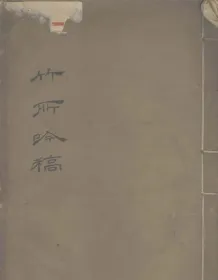 竹所吟稿